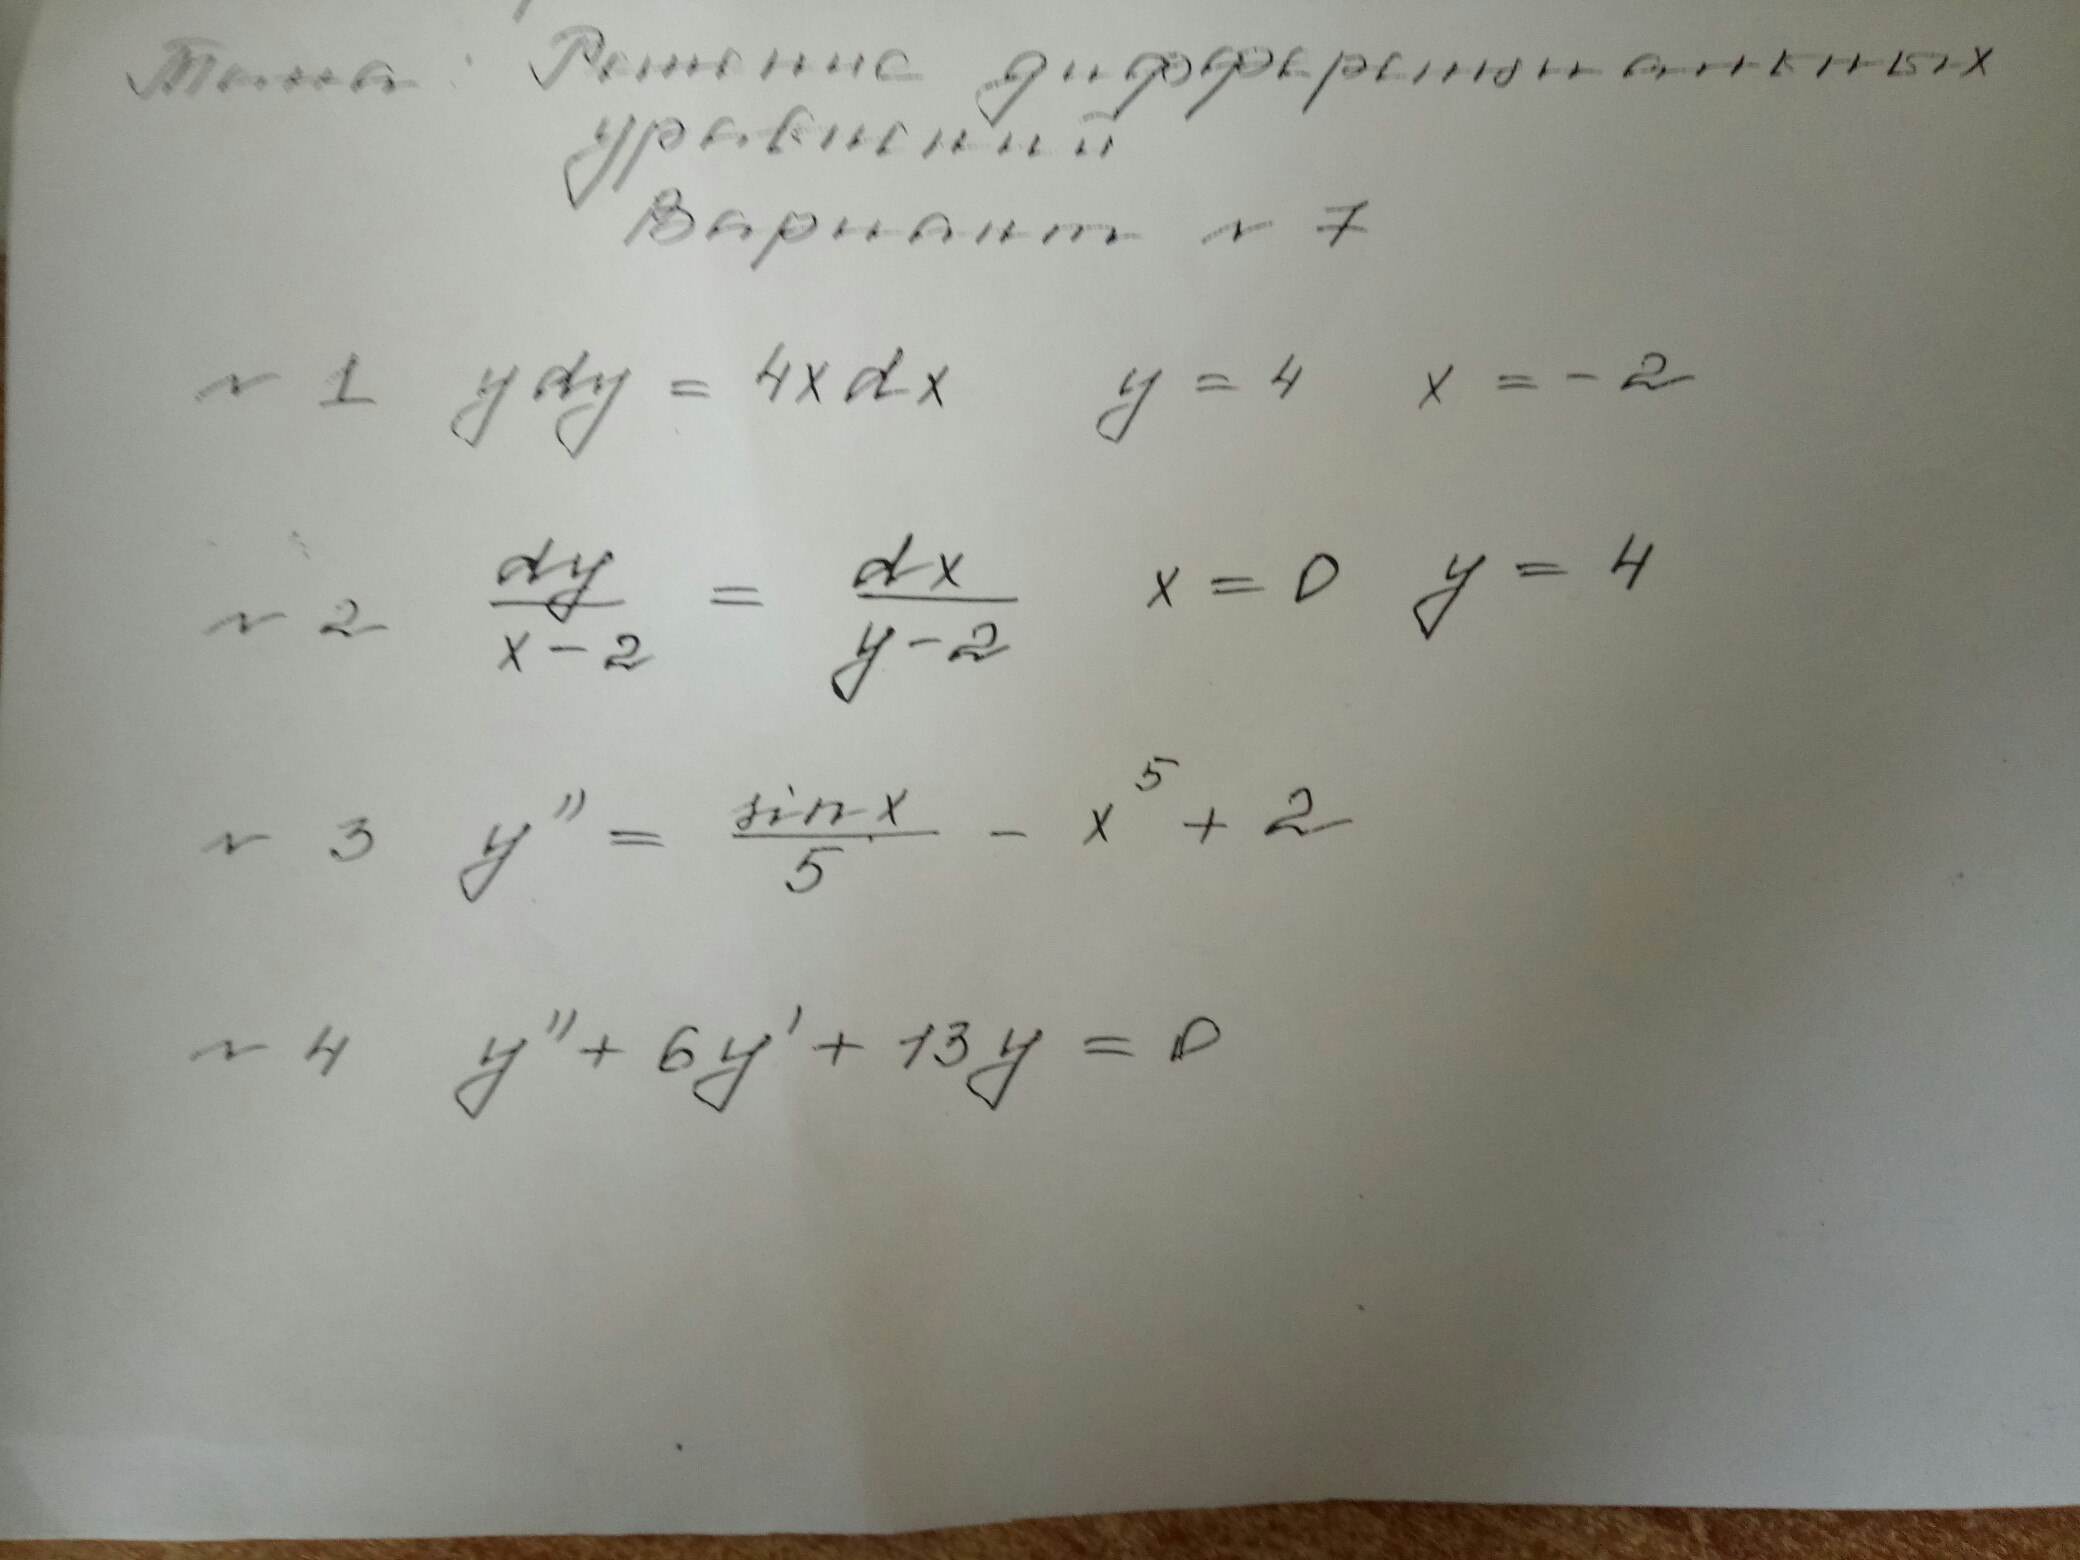 Тема: Решение дифференциальных
уравнений
Вариант N 7
N 1 ydy = 4xdx y = 4 x = -2
N 2 dy/(x-2) = dx/(y-2) x = 0 y = 4
N 3 y'' = sinx/5 - x^5 + 2
N 4 y'' + 6y' + 13y = 0